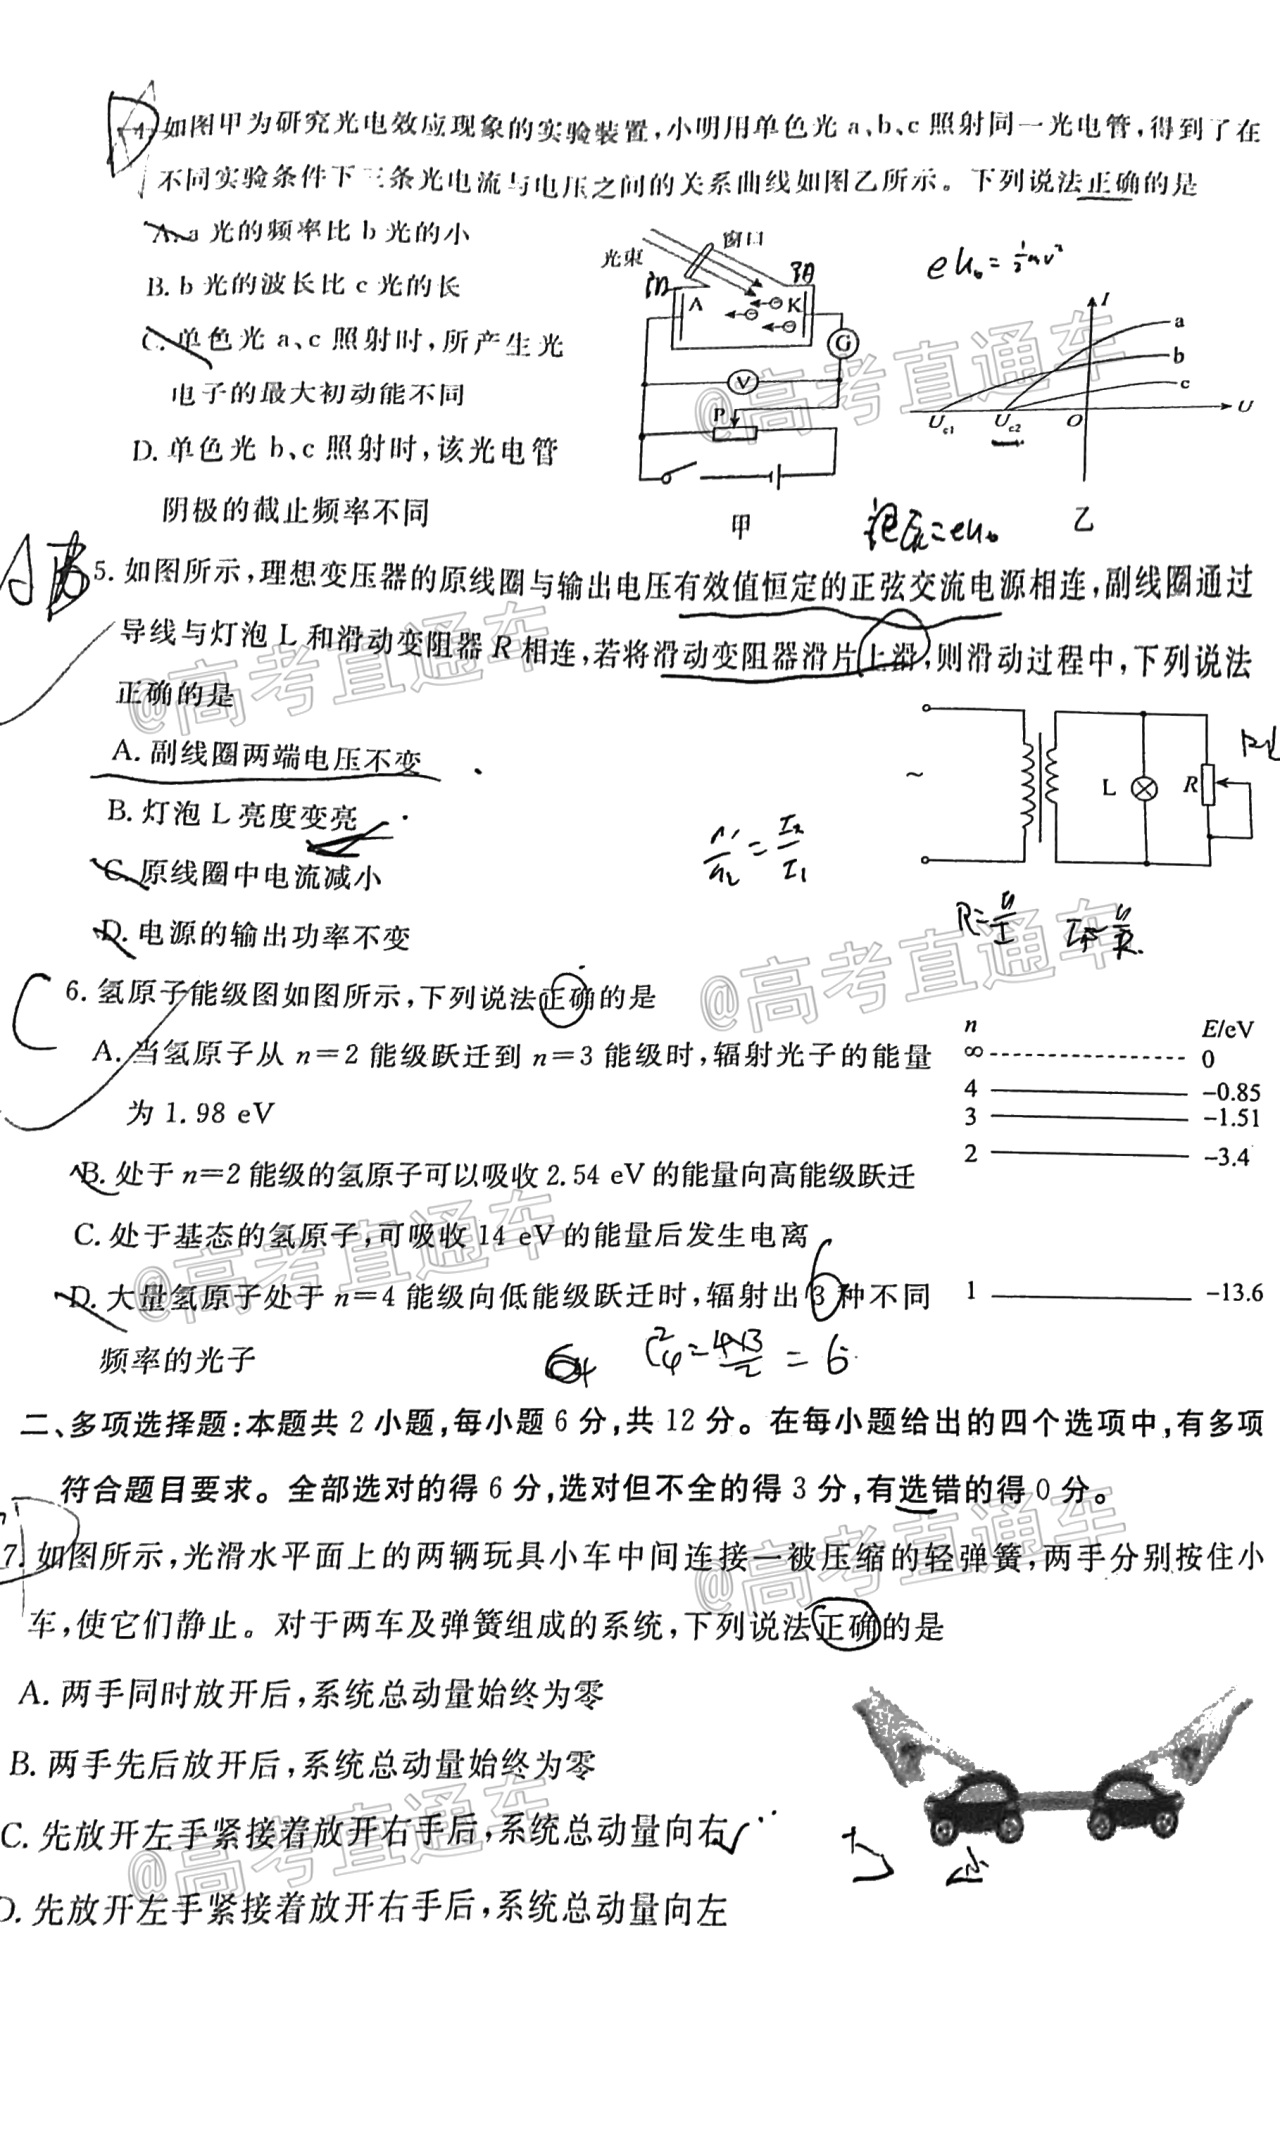 4. 如图甲为研究光电效应现象的实验装置,小明用单色光 a、b、c 照射同一光电管,得到了在
不同实验条件下三条光电流与电压之间的关系曲线如图乙所示。下列说法正确的是
A. a 光的频率比 b 光的小
B. b 光的波长比 c 光的长
C. 单色光 a、c 照射时,所产生光
电子的最大初动能不同
D. 单色光 b、c 照射时,该光电管
阴极的截止频率不同
光束
窗口
阴
A
K
G
V
P
甲
I
a
b
c
U
Uc1
Uc2
O
乙
D
5. 如图所示,理想变压器的原线圈与输出电压有效值恒定的正弦交流电源相连,副线圈通过
导线与灯泡 L 和滑动变阻器 R 相连,若将滑动变阻器滑片上滑,则滑动过程中,下列说法
正确的是
A. 副线圈两端电压不变
B. 灯泡 L 亮度变亮
C. 原线圈中电流减小
D. 电源的输出功率不变
~
L
R
n1/n2 = I2/I1
R=U/I
A
6. 氢原子能级图如图所示,下列说法正确的是
A. 当氢原子从 n=2 能级跃迁到 n=3 能级时,辐射光子的能量
为 1.98 eV
B. 处于 n=2 能级的氢原子可以吸收 2.54 eV 的能量向高能级跃迁
C. 处于基态的氢原子,可吸收 14 eV 的能量后发生电离
D. 大量氢原子处于 n=4 能级向低能级跃迁时,辐射出 3 种不同
频率的光子
n E/eV
∞ 0
4 -0.85
3 -1.51
2 -3.4
1 -13.6
C
6
C²₄=4×3/2=6
二、多项选择题:本题共 2 小题,每小题 6 分,共 12 分。在每小题给出的四个选项中,有多项
符合题目要求。全部选对的得 6 分,选对但不全的得 3 分,有选错的得 0 分。
7. 如图所示,光滑水平面上的两辆玩具小车中间连接一被压缩的轻弹簧,两手分别按住小
车,使它们静止。对于两车及弹簧组成的系统,下列说法正确的是
A. 两手同时放开后,系统总动量始终为零
B. 两手先后放开后,系统总动量始终为零
C. 先放开左手紧接着放开右手后,系统总动量向右
D. 先放开左手紧接着放开右手后,系统总动量向左
@高考直通车
@高考直通车
@高考直通车
@高考直通车
@高考直通车
@高考直通车